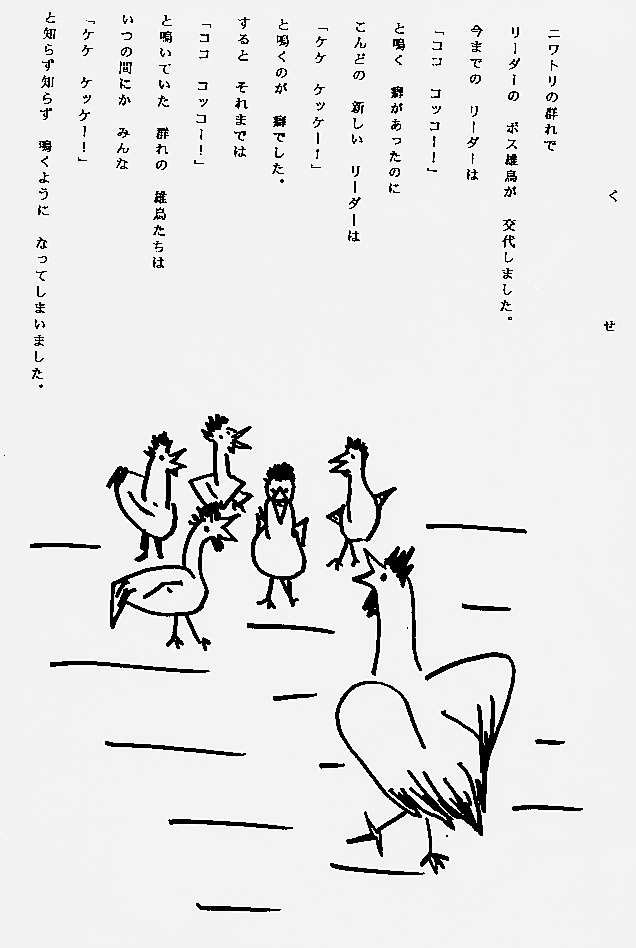 くせ
ニワトリの群れで
リーダーの ボス雄鳥が 交代しました。
今までの リーダーは
「ココ コッコー!」
と鳴く 癖があったのに
こんどの 新しい リーダーは
「ケケ ケッケー!」
と鳴くのが 癖でした。
すると それまでは
「ココ コッコー!」
と鳴いていた 群れの 雄鳥たちは
いつの間にか みんな
「ケケ ケッケー!」
と知らず知らず 鳴くように なってしまいました。